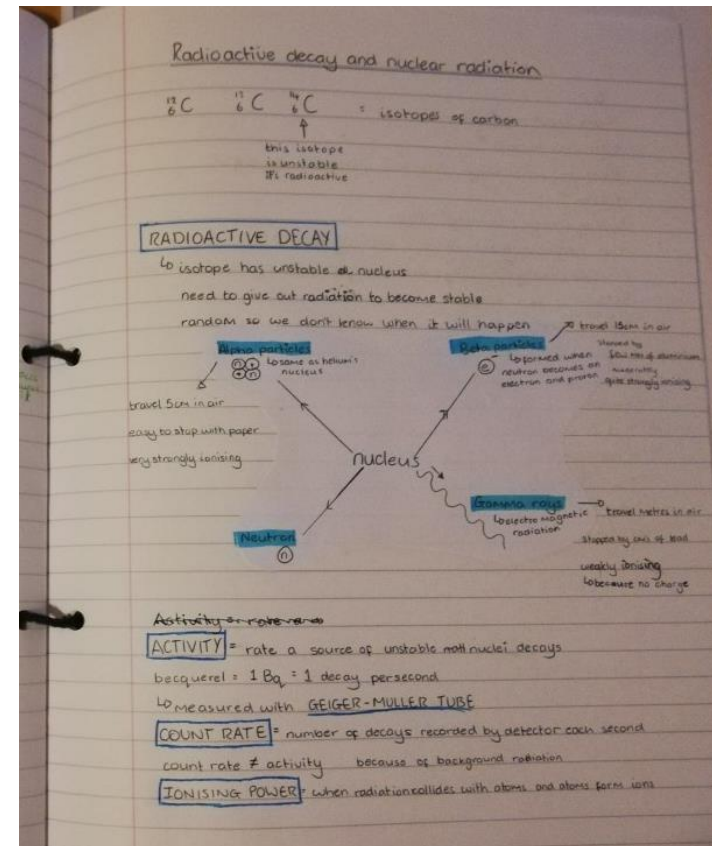 Radioactive decay and nuclear radiation
12 6 C 13 6 C 14 6 C = isotopes of carbon
this isotope
is unstable
radioactive
RADIOACTIVE DECAY
↳ isotope has unstable nucleus
need to give out radiation to become stable
random so we don't know when it will happen
Alpha particles
n + + n
↳ same as helium's
nucleus
travel 5cm in air
easy to stop with paper
very strongly ionising
Beta particles
e⁻ ↳ formed when
neutron becomes an
electron and proton
travel 15cm in air
stopped by
few mm of aluminium
moderately
quite strongly ionising
nucleus
Neutron
n
Gamma rays
↳ electro magnetic
radiation
travel metres in air
stopped by cms of lead
weakly ionising
↳ because no charge
Activity or rate
ACTIVITY = rate a source of unstable nuclei decays
becquerel = 1 Bq = 1 decay per second
↳ measured with GEIGER-MULLER TUBE
COUNT RATE = number of decays recorded by detector each second
count rate ≠ activity because of background radiation
IONISING POWER = when radiation collides with atoms and atoms form ions